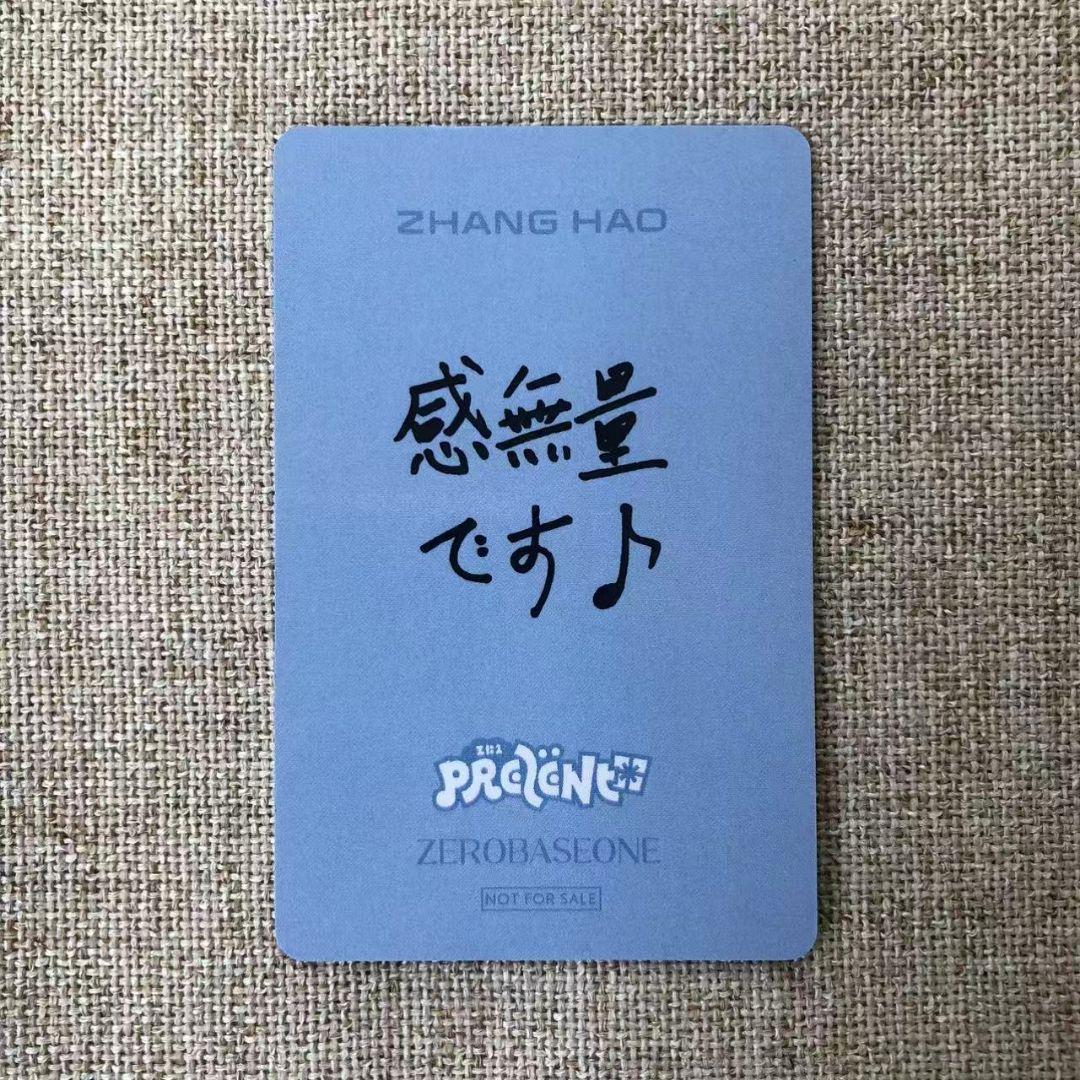 ZHANG HAO
感無量
です♪
ZB1
PREZENT
ZEROBASEONE
NOT FOR SALE